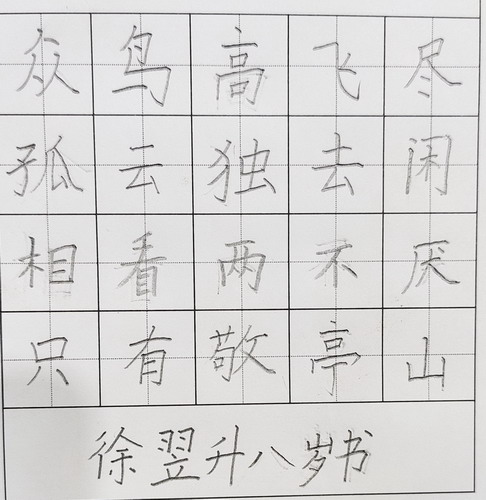 众鸟高飞尽
孤云独去闲
相看两不厌
只有敬亭山
徐翌升八岁书